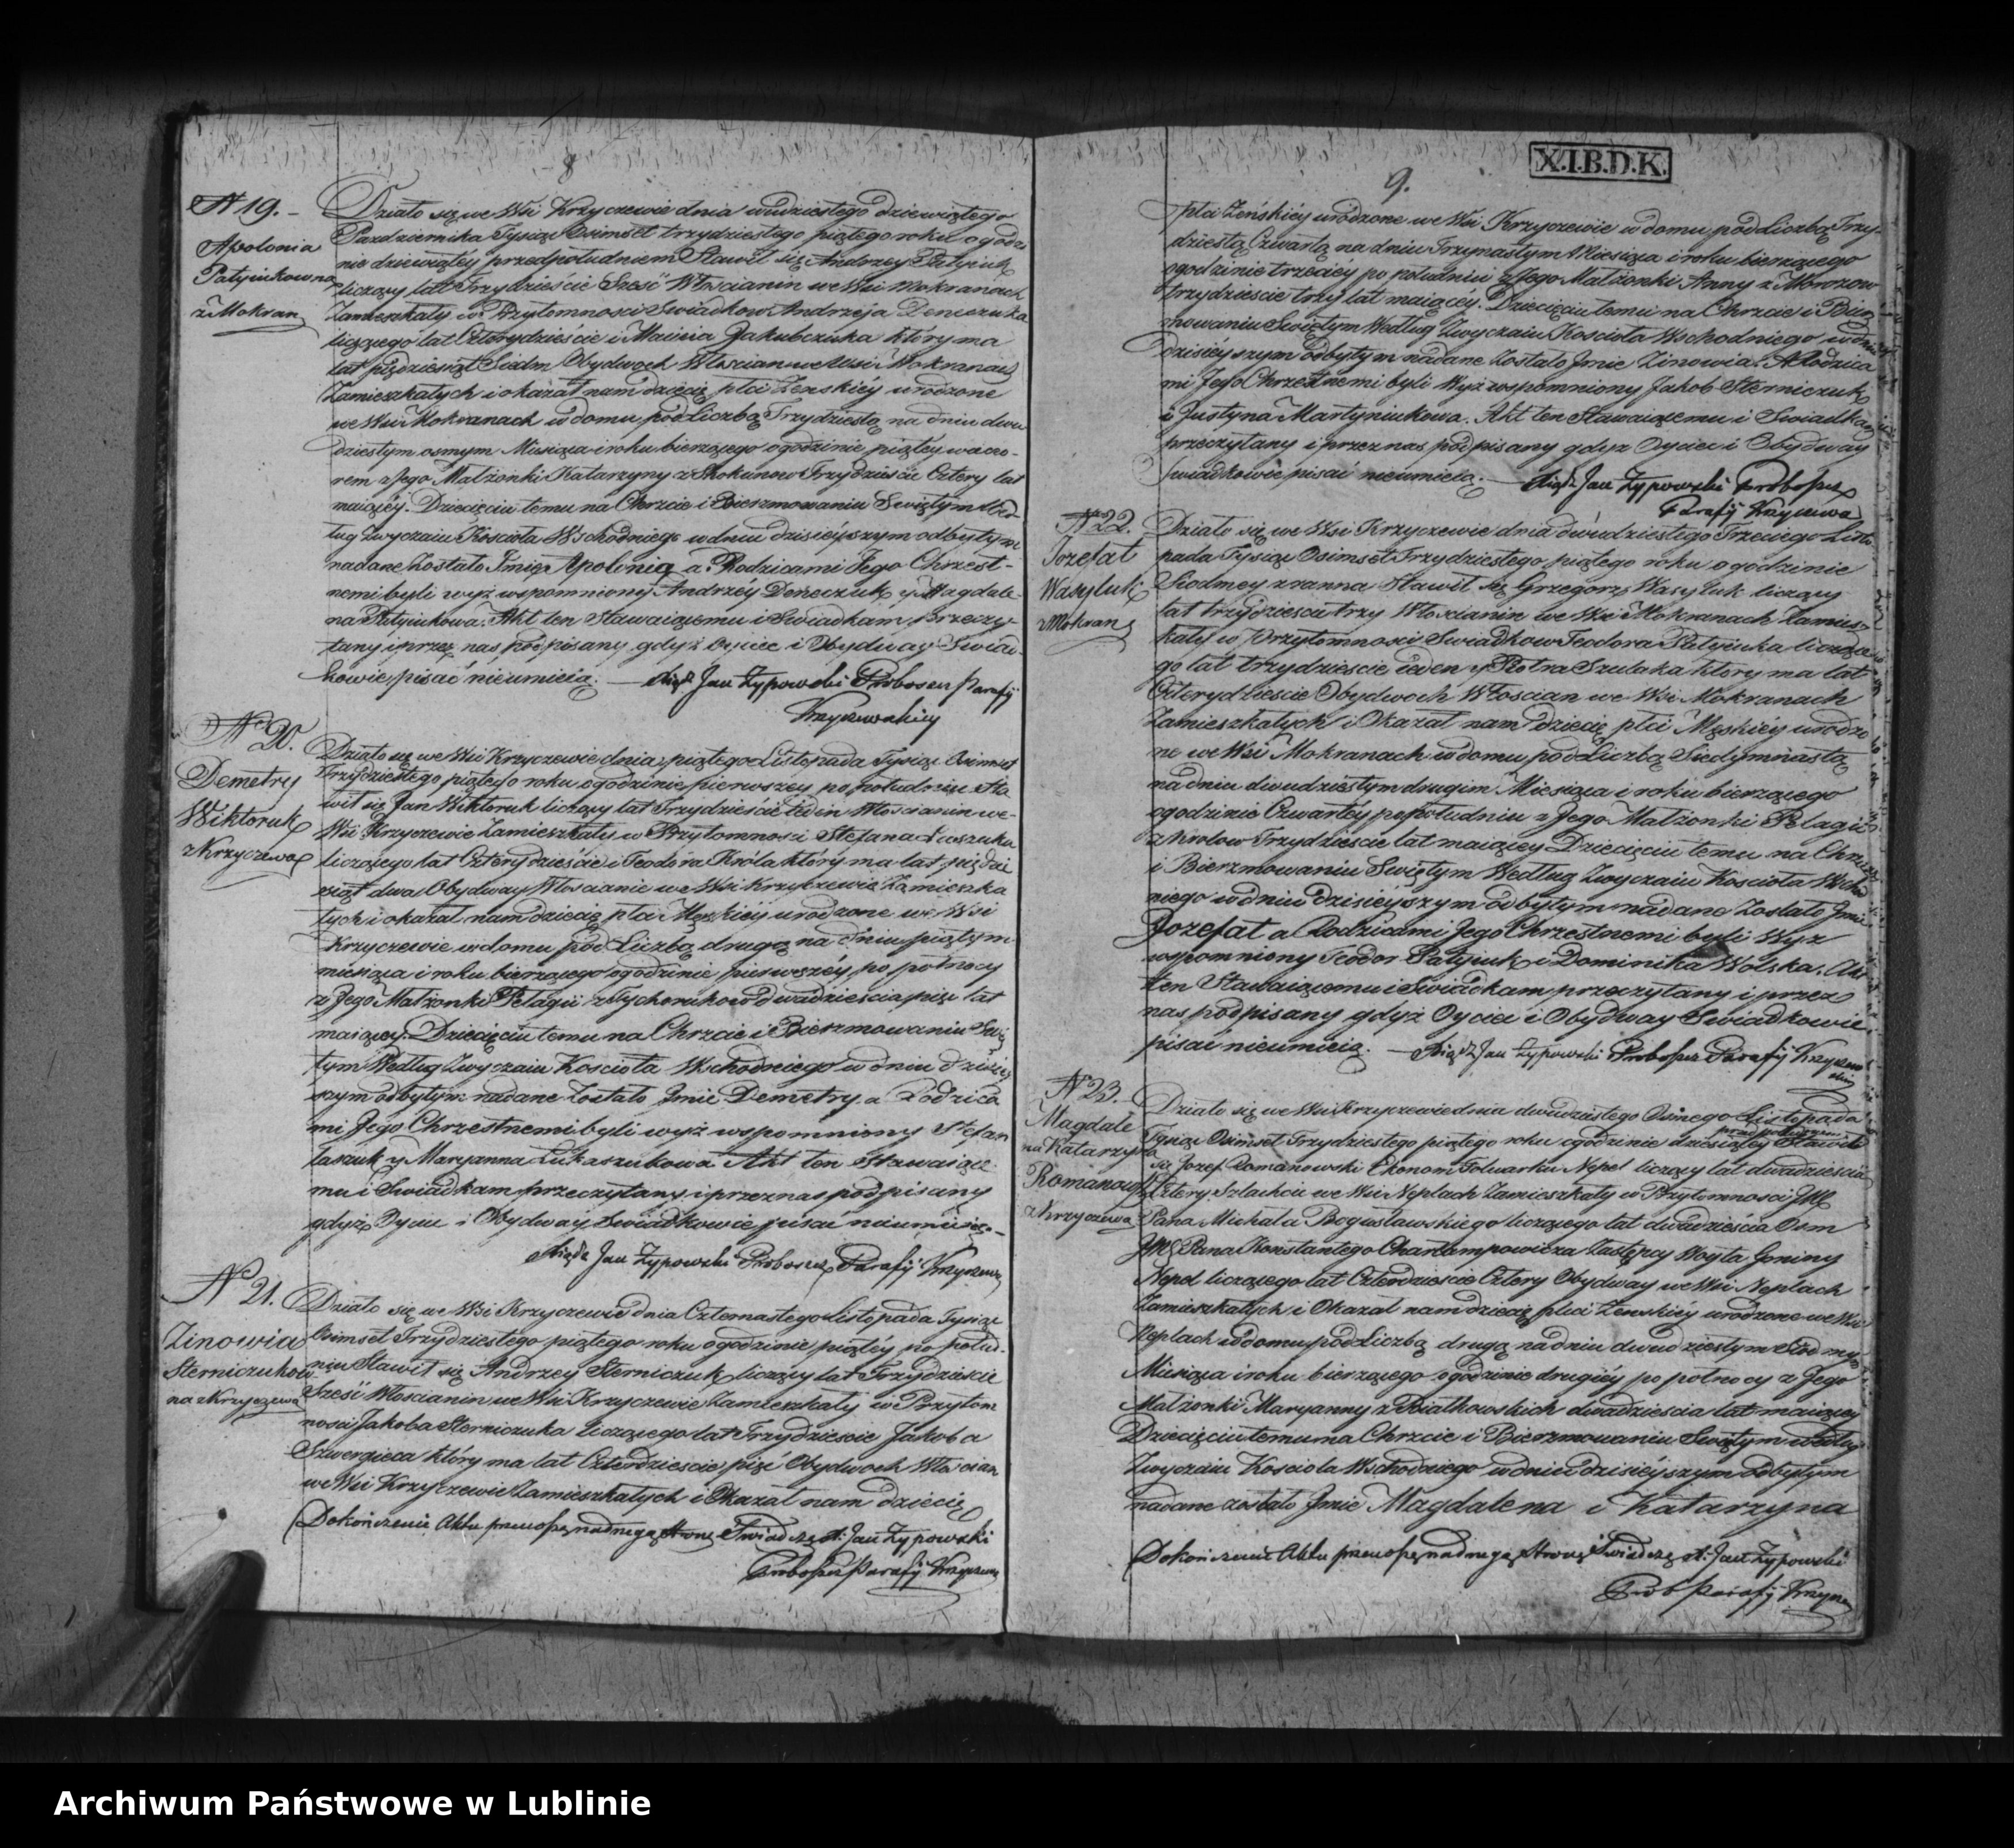 8
N 19. –
Apolonia
Patyiukowna
z Mokran
Działo się we Wsi Krzyczewie dnia dwudziestego dziewiątego
Pazdziernika Tysiąc Osimset trzydziestego piątego roku o godzi
nie dziewiątey przedpołudniem Stawił się Andrzey Patyiuk
liczący lat Trzydzieście Sześć Włościanin we Wsi Mokranach
Zamieszkały w Przytomnosci Swiadkow Andrzeja Deneczuka
liczącego lat Czterydzieście i Jakubczuka który ma
lat pięćdziesiąt Siedm Obydwoch Włoscian we Wsi Mokranach
Zamieszkałych i okazał nam dziecię płci Zenskiéy urodzone
we Wsi Mokranach w domu pod Liczbą Trzydziestą na dniu dwu
dziestym osmym Miesiąca i roku bierzącego o godzinie piątey wieczo-
rem z Jego Małżonki Katarzyny z Trzydzieście Cztery lat
maiącéy. Dziecięciu temu na Chrzcie i Bierzmowaniu Swiętym Wed-
ług Zwyczaiu Kosciola Wschodniego w dniu dzisiéyszym odbytym
nadane Zostało Imię Apolonia a Rodzicami Jego Chrzest-
nemi byli wyż wspomniony Andrzéy Deneczuk y Magdale-
na Patyiukowa. Akt ten Stawaiącemu i Swiadkam Przeczy-
tany i przez nas podpisany gdyż Oyciec i Obydway Swiad-
kowie pisać nieumieią. — Xiądz Jan Zypowski Proboscz Parafij
Krzyczewskiey
N 20.
Demetry
Wiktoruk
z Krzyczewa
Działo się we Wsi Krzyczewie dnia piątego Listopada Tysiąc Osimset
Trzydziestego piątego roku o godzinie pierwszey po południu Sta
wił się Jan Wiktoruk liczący lat Trzydzieście ieden Włościanin we
Wsi Krzyczewie Zamieszkały w Przytomnosci Stefana Łuszuka
liczącego lat Czterydzieście i Teodora Króla który ma lat pięćdzie
siąt dwa Obydway Włoscianie we Wsi Krzyczewie Zamieszka
łych i okazał nam dziecię płci Męzkiéy urodzone we Wsi
Krzyczewie w domu pod Liczbą drugą na dniu piątym
miesiąca i roku bierzącego o godzinie pierwszéy po północy
z Jego Małżonki Pelagii z Tychoniukow dwadzieścia pięć lat
maiącey. Dziecięciu temu na Chrzcie i Bierzmowaniu Swię
tym Według Zwyczaiu Kosciola Wschodniego w dniu dzisiéy
szym odbytym nadane Zostało Imie Demetry a Rodzica
mi Jego Chrzestnemi byli wyż wspomniony Stefan
Łuszuk y Maryanna Łukaszukowa Akt ten Stawaiące
mu i Swiadkam przeczytany i przez nas podpisany
gdyż Oyciec i Obydway Swiadkowie pisać nieumieią. –
Xiądz Jan Zypowski Proboscz Parafij Krzyczew
N 21.
Zinowia
Sterniczukow
na z Krzyczewa
Działo się we Wsi Krzyczewie dnia Czternastego Listopada Tysiąc
Osimset Trzydziestego piątego roku o godzinie piątéy po połud-
niu Stawił się Andrzey Sterniczuk liczący lat Trzydzieście
Sześć Włoscianin we Wsi Krzyczewie Zamieszkały w Przytom
nosci Jakoba Sterniczuka liczącego lat Trzydzieście Jakoba
Szwergieca który ma lat Czterdzieście pięć Obydwoch Włoscian
we Wsi Krzyczewie Zamieszkałych i Okazał nam dziecię
Dokończenie Aktu przenosi się na drugą stronę Swiadczę X. Jan Zypowski
Proboscz Parafij Krzyczew
9.
X.I.B.D.K.
płci Zeńskiéy urodzone we Wsi Krzyczewie w domu pod Liczbą Trzy-
dziestą Czwartą na dniu Trzynastym Miesiąca i roku bierzącego
o godzinie trzeciéy po południu z Jego Małżonki Anny z Morozow
trzydzieście trzy lat maiącéy. Dziecięciu temu na Chrzcie i Bierz
mowaniu Swiętym Według Zwyczaiu Kosciola Wschodniego w dniu
dzisiéyszym odbytym nadane Zostało Imie Zinowia. A Rodzica
mi Jego Chrzestnemi byli Wyż wspomniony Jakob Sterniczuk
i Justyna Martyniukowa. Akt ten Stawaiącemu i Swiadkam
przeczytany i przez nas podpisany gdyż Oyciec i Obydway
Swiadkowie pisać nieumieią. — Xiądz Jan Zypowski Proboscz
Parafij Krzyczewa
N 22.
Jozefat
Wasyluk
z Mokran
Działo się we Wsi Krzyczewie dnia dwudziestego Trzeciego Listo
pada Tysiąc Osimset Trzydziestego piątego roku o godzinie
Siodmey zranna Stawił się Grzegorz Wasyluk liczący
lat trzydzieście trzy Włoscianin we Wsi Mokranach Zamiesz
kały w Przytomnosci Swiadkow Teodora Patyiuka liczące
go lat trzydzieście ieden y Piotra Szulaka ktory ma lat
Czterydzieście Obydwoch Włoscian we Wsi Mokranach
Zamieszkałych i Okazał nam dziecię płci Męskiéy urodzo
ne we Wsi Mokranach w domu pod Liczbą Siedymnastą
na dniu dwudziestym drugim Miesiąca i roku bierzącego
o godzinie Czwartéy po południu z Jego Małżonki Pelagii
z Krolow Trzydzieście lat maiącey Dziecięciu temu na Chrzcie
i Bierzmowaniu Swiętym Według Zwyczaiu Kosciola Wscho
niego w dniu dzisiéyszym odbytym nadane Zostało Imie
Jozefat a Rodzicami Jego Chrzestnemi byli Wyz
wspomniony Teodor Patyiuk i Dominika Wolska. Akt
ten Stawaiącemu i Swiadkam przeczytany i przez
nas podpisany gdyż Oyciec i Obydway Swiadkowie
pisać nieumieią. — Xiądz Jan Zypowski Proboscz Parafij Krzyczew
skiey
N 23.
Magdale
na Katarzyna
Romanows
z Krzyczewa
Działo się we Wsi Krzyczewie dnia dwudziestego Osmego Listopada
Tysiąc Osimset Trzydziestego piątego roku o godzinie dziesiątey przed południem Stawił
się Jozef Romanowski Ekonom Folwarku Nepel liczący lat dwadzieścia
Cztery Szlachcic we Wsi Neplach Zamieszkały w Przytomnosci JMC
Pana Michała Bogusławskiego liczącego lat dwadzieścia Osm
JMC Pana Konstantego Charłampowicza Zastępcy Woyta Gminy
Nepel liczącego lat Czterdzieście Cztery Obydway we Wsi Neplach
Zamieszkałych i Okazał nam dziecię płci Zenskiéy urodzone we Wsi
Neplach w domu pod Liczbą drugą na dniu dwudziestym Siodmym
Miesiąca i roku bierzącego o godzinie drugiéy po północy z Jego
Małżonki Maryanny z Białkowskich dwadzieścia lat maiącey
Dziecięciu temu na Chrzcie i Bierzmowaniu Swiętym według
Zwyczaiu Kosciola Wschodniego w dniu dzisiéyszym odbytym
nadane zostało Imie Magdalena i Katarzyna
Dokończenie Aktu przenosi się na drugą stronę Swiadczę X. Jan Zypowski
Prob Parafij Krzycz
Archiwum Państwowe w Lublinie